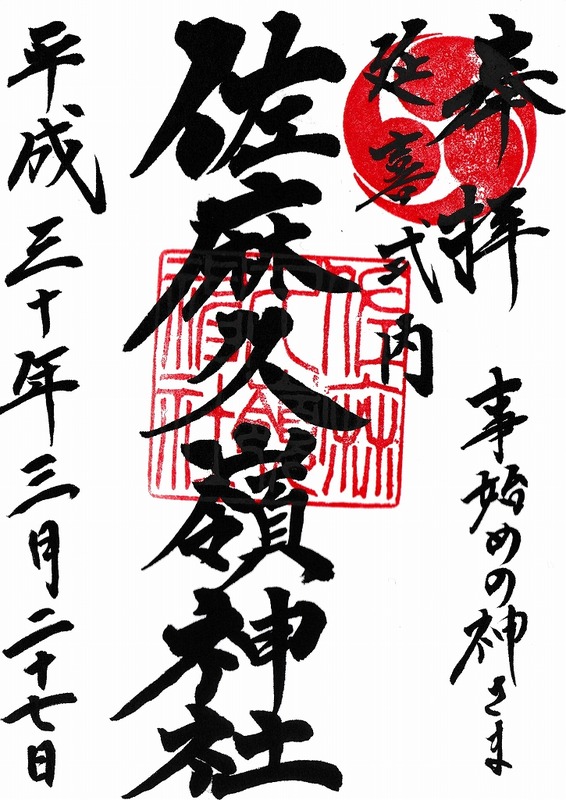 奉拝
事始めの神さま
延喜式内
佐麻久嶺神社
平成三十年三月二十七日